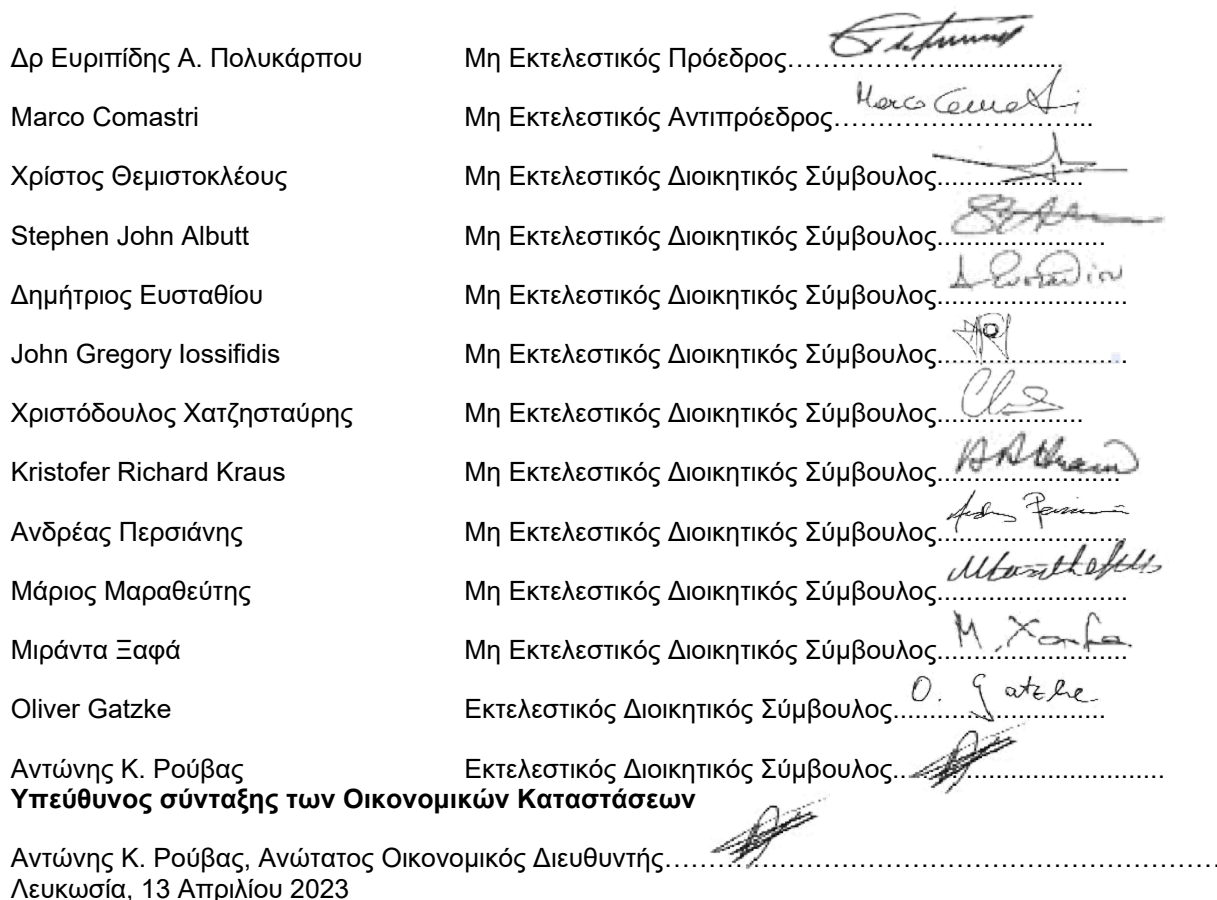 Δρ Ευριπίδης Α. Πολυκάρπου Μη Εκτελεστικός Πρόεδρος……………….....................
Marco Comastri Μη Εκτελεστικός Αντιπρόεδρος……………………….. Marco Comastri
Χρίστος Θεμιστοκλέους Μη Εκτελεστικός Διοικητικός Σύμβουλος....................
Stephen John Albutt Μη Εκτελεστικός Διοικητικός Σύμβουλος.......................
Δημήτριος Ευσταθίου Μη Εκτελεστικός Διοικητικός Σύμβουλος.......................... Δ Ευσταθίου
John Gregory Iossifidis Μη Εκτελεστικός Διοικητικός Σύμβουλος..........................
Χριστόδουλος Χατζησταύρης Μη Εκτελεστικός Διοικητικός Σύμβουλος....................
Kristofer Richard Kraus Μη Εκτελεστικός Διοικητικός Σύμβουλος.........................
Ανδρέας Περσιάνης Μη Εκτελεστικός Διοικητικός Σύμβουλος..........................
Μάριος Μαραθεύτης Μη Εκτελεστικός Διοικητικός Σύμβουλος..........................
Μιράντα Ξαφά Μη Εκτελεστικός Διοικητικός Σύμβουλος.......................... M. Xafa
Oliver Gatzke Εκτελεστικός Διοικητικός Σύμβουλος............................. O. Gatzke
Αντώνης Κ. Ρούβας Εκτελεστικός Διοικητικός Σύμβουλος.....................................
Υπεύθυνος σύνταξης των Οικονομικών Καταστάσεων
Αντώνης Κ. Ρούβας, Ανώτατος Οικονομικός Διευθυντής……………………………………………………….
Λευκωσία, 13 Απριλίου 2023